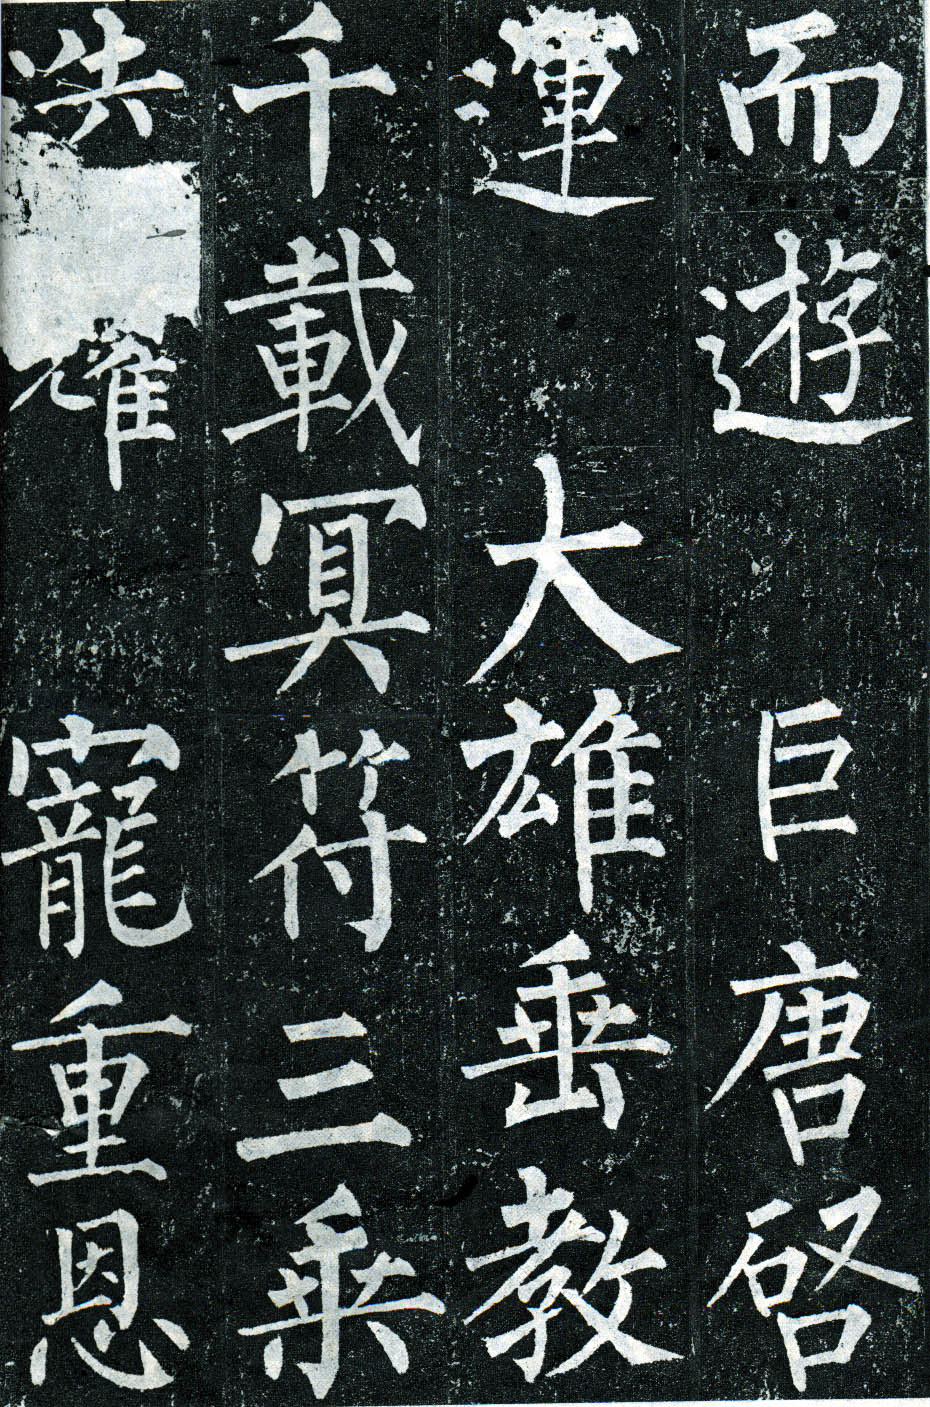 而遊巨唐啓
運大雄垂教
千載冥符三乗
耀寵重恩